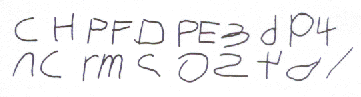 C H P F D P E 3 d P 4
n C r m s O 2 t d /